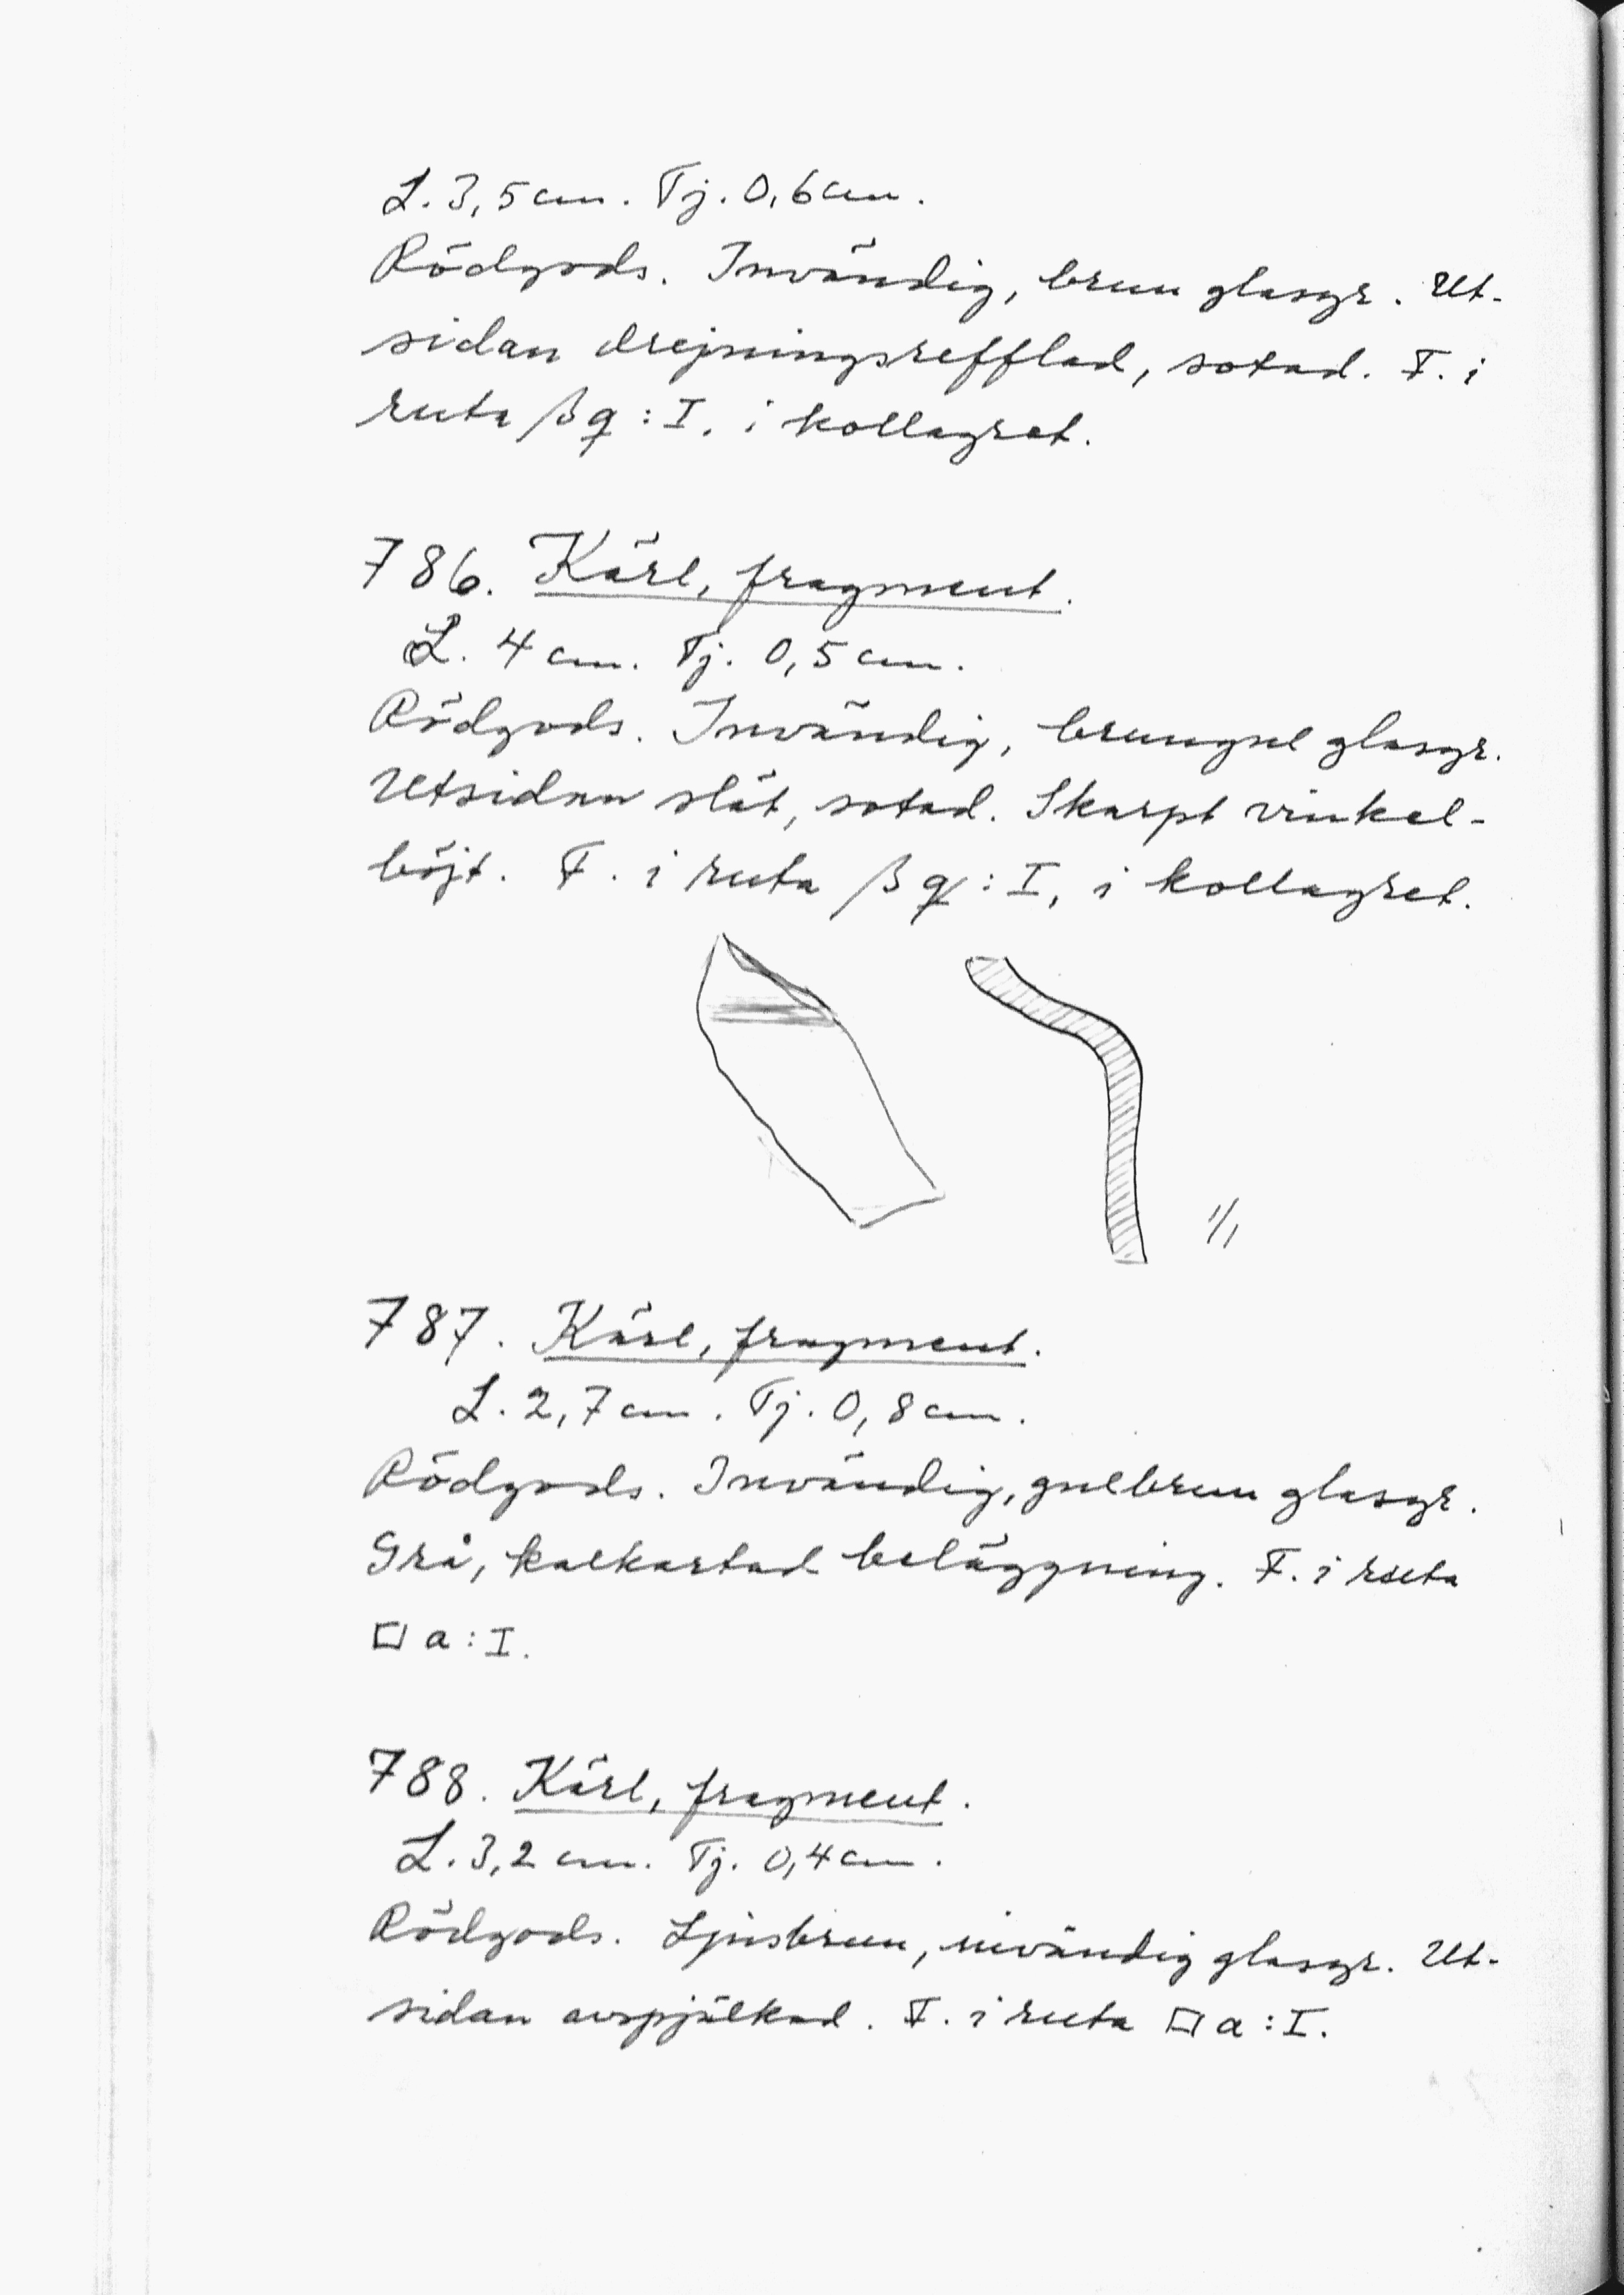 L. 3,5 cm. Tj. 0,6 cm.
Rödgods. Invändig, brun glasyr. Ut-
sidan drejningsrefflad, sotad. F. i
ruta β q : I, i kollagret.
786. Kärl, fragment.
L. 4 cm. Tj. 0,5 cm.
Rödgods. Invändig, brungul glasyr.
Utsidan slät, sotad. Skarpt vinkel-
böjt. F. i ruta β q : I, i kollagret.
1/1
787. Kärl, fragment.
L. 2,7 cm. Tj. 0,8 cm.
Rödgods. Invändig, gulbrun glasyr.
Grå, kalkartad beläggning. F. i ruta
□ a : I.
788. Kärl, fragment.
L. 3,2 cm. Tj. 0,4 cm.
Rödgods. Ljusbrun, invändig glasyr. Ut-
sidan avspjälkad. F. i ruta □ a : I.